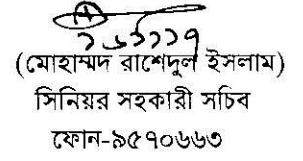 (মোহাম্মদ রাশেদুল ইসলাম)
সিনিয়র সহকারী সচিব
ফোন-৯৫৭০৬৬৩